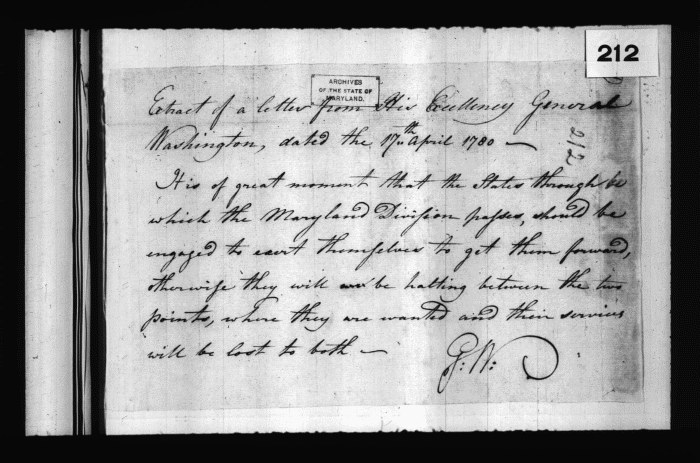 212
ARCHIVES
OF THE STATE OF
MARYLAND.
Extract of a letter from His Excellency General
Washington, dated the 17th April 1780 —
212
It is of great moment that the States through
which the Maryland Division passes, should be
engaged to exert themselves to get them forward,
otherwise they will be halting between the two
points, where they are wanted and their services
will be lost to both —
G: W: